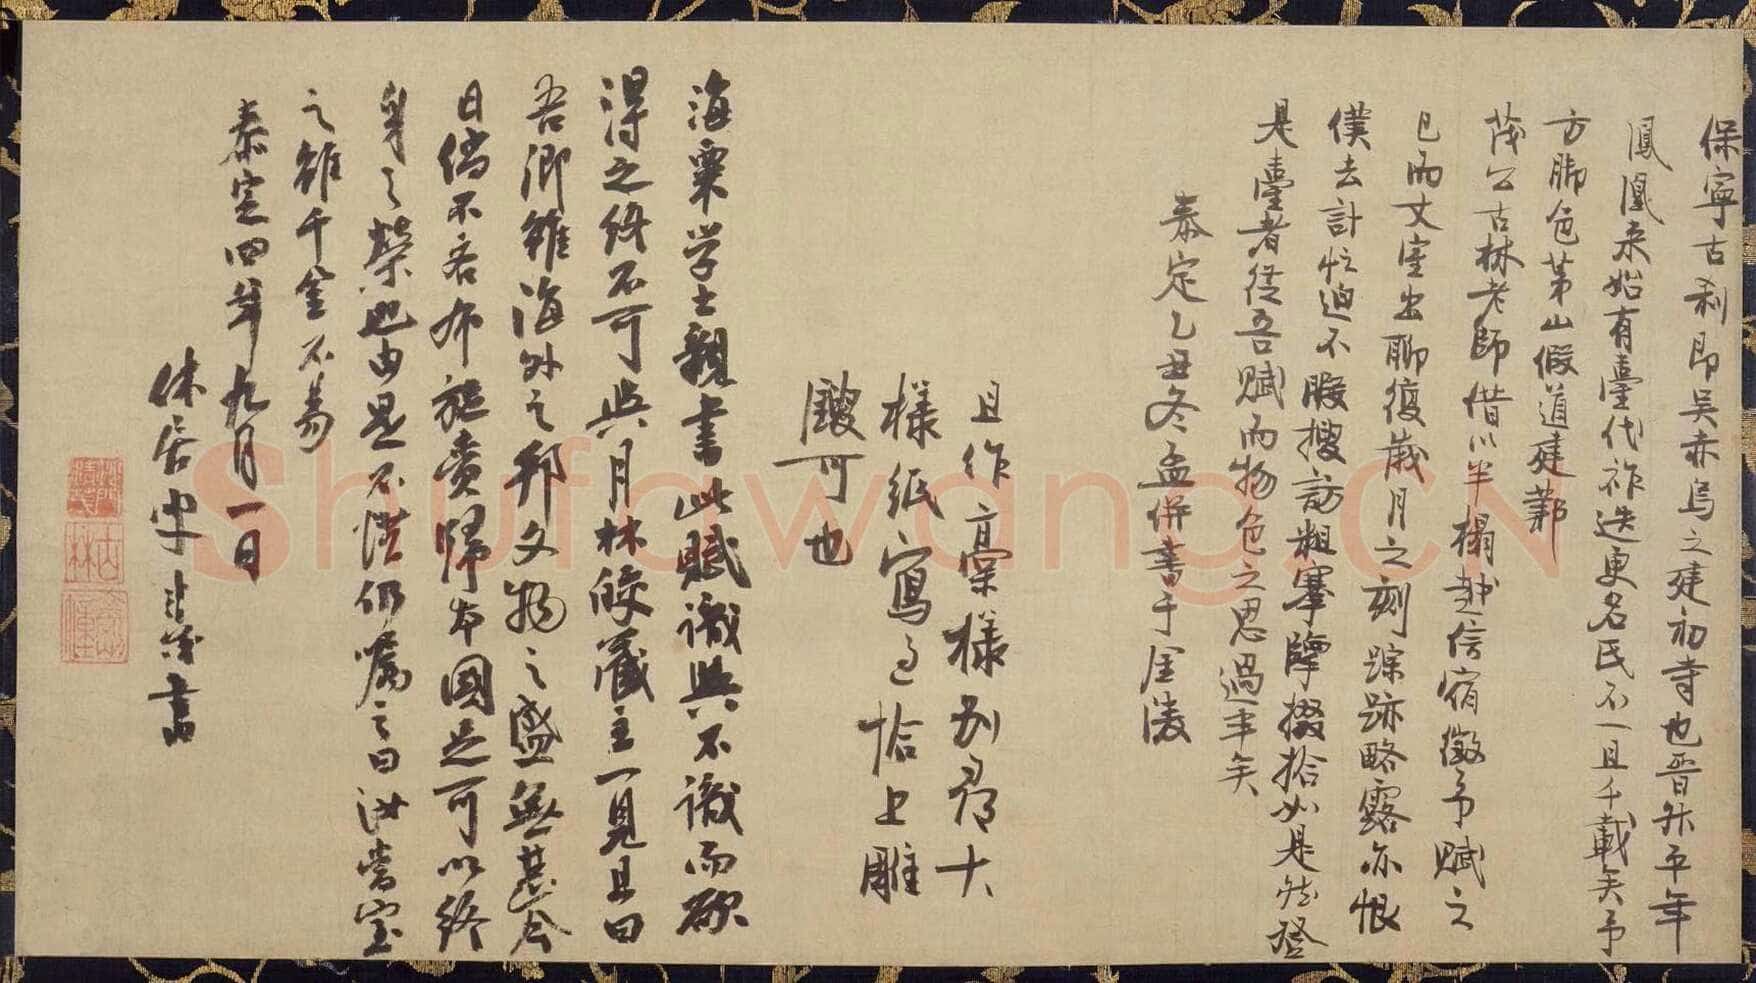 保寧古刹即吳赤烏之建初寺也晋升平年
鳳凰来始有臺代祚迭更名氏不一且千載矣予
方脚色茅山假道建鄴
茂公古林老師借以半榻越信宿徵予賦之
已而丈室出聊復歲月之刻蹤跡略露亦恨
僕去計忙迫不暇搜訪粗搴陣掇拾如是然登
是臺者從吾賦而物色之思過半矣
泰定乙丑冬孟併書于金陵
且作稾樣別尋大
樣紙寫過恰上雕
鏤可也
海粟学士親書此賦識與不識而欲
得之終不可與月林皎藏主一見且曰
吾卿雖海外之邦文物之盛無甚今
日倘不吝布施賫歸本國足可以終
身之榮也由是不惜仍囑之曰汝當宝
之雖千金不易
泰定四年九月一日
休居叟 書
Shufawang.CN